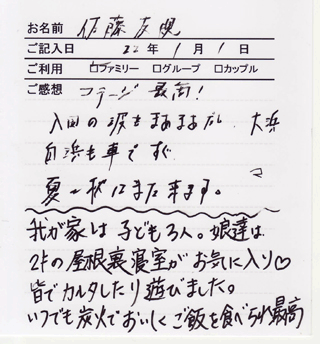 お名前 佐藤友規
ご記入日 22年1月1日
ご利用 □ファミリー □グループ □カップル
ご感想 コテージ 最高!
入田の波もまあまあだし、大浜
白浜も車ですぐ
夏〜秋にまた来ます。
我が家は子ども3人。娘達は
2Fの屋根裏寝室がお気に入り♡
皆でカルタしたり遊びました。
いつでも炭火でおいしくご飯を食べられ最高